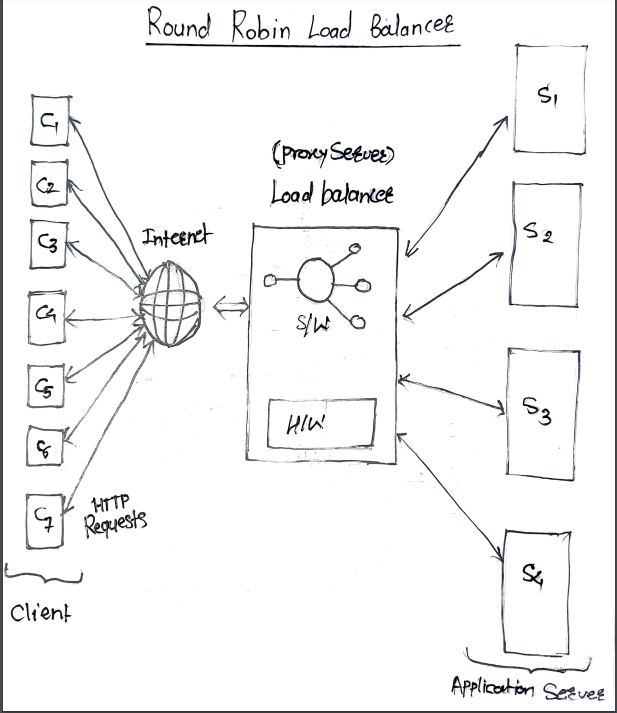 Round Robin Load Balancer
C1
C2
C3
C4
C5
C6
C7
HTTP
Requests
Client
Internet
(Proxy Server)
Load balancer
S/W
H/W
S1
S2
S3
S4
Application Server